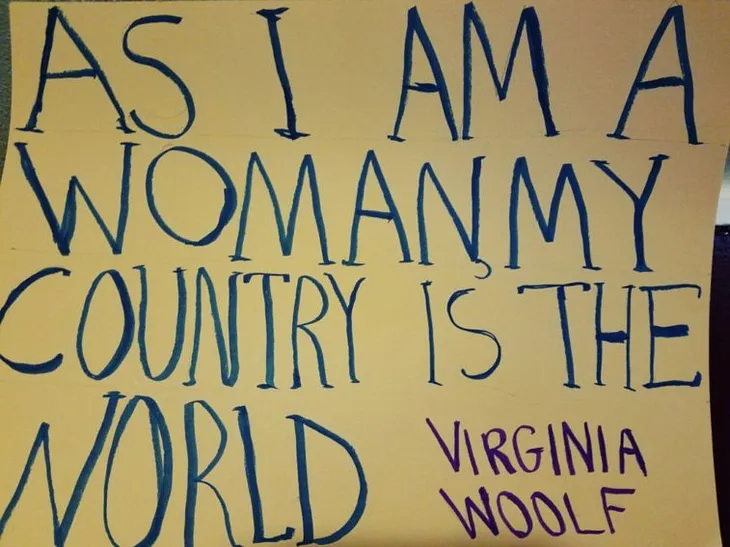 AS I AM A
WOMAN, MY
COUNTRY IS THE
WORLD
VIRGINIA
WOOLF